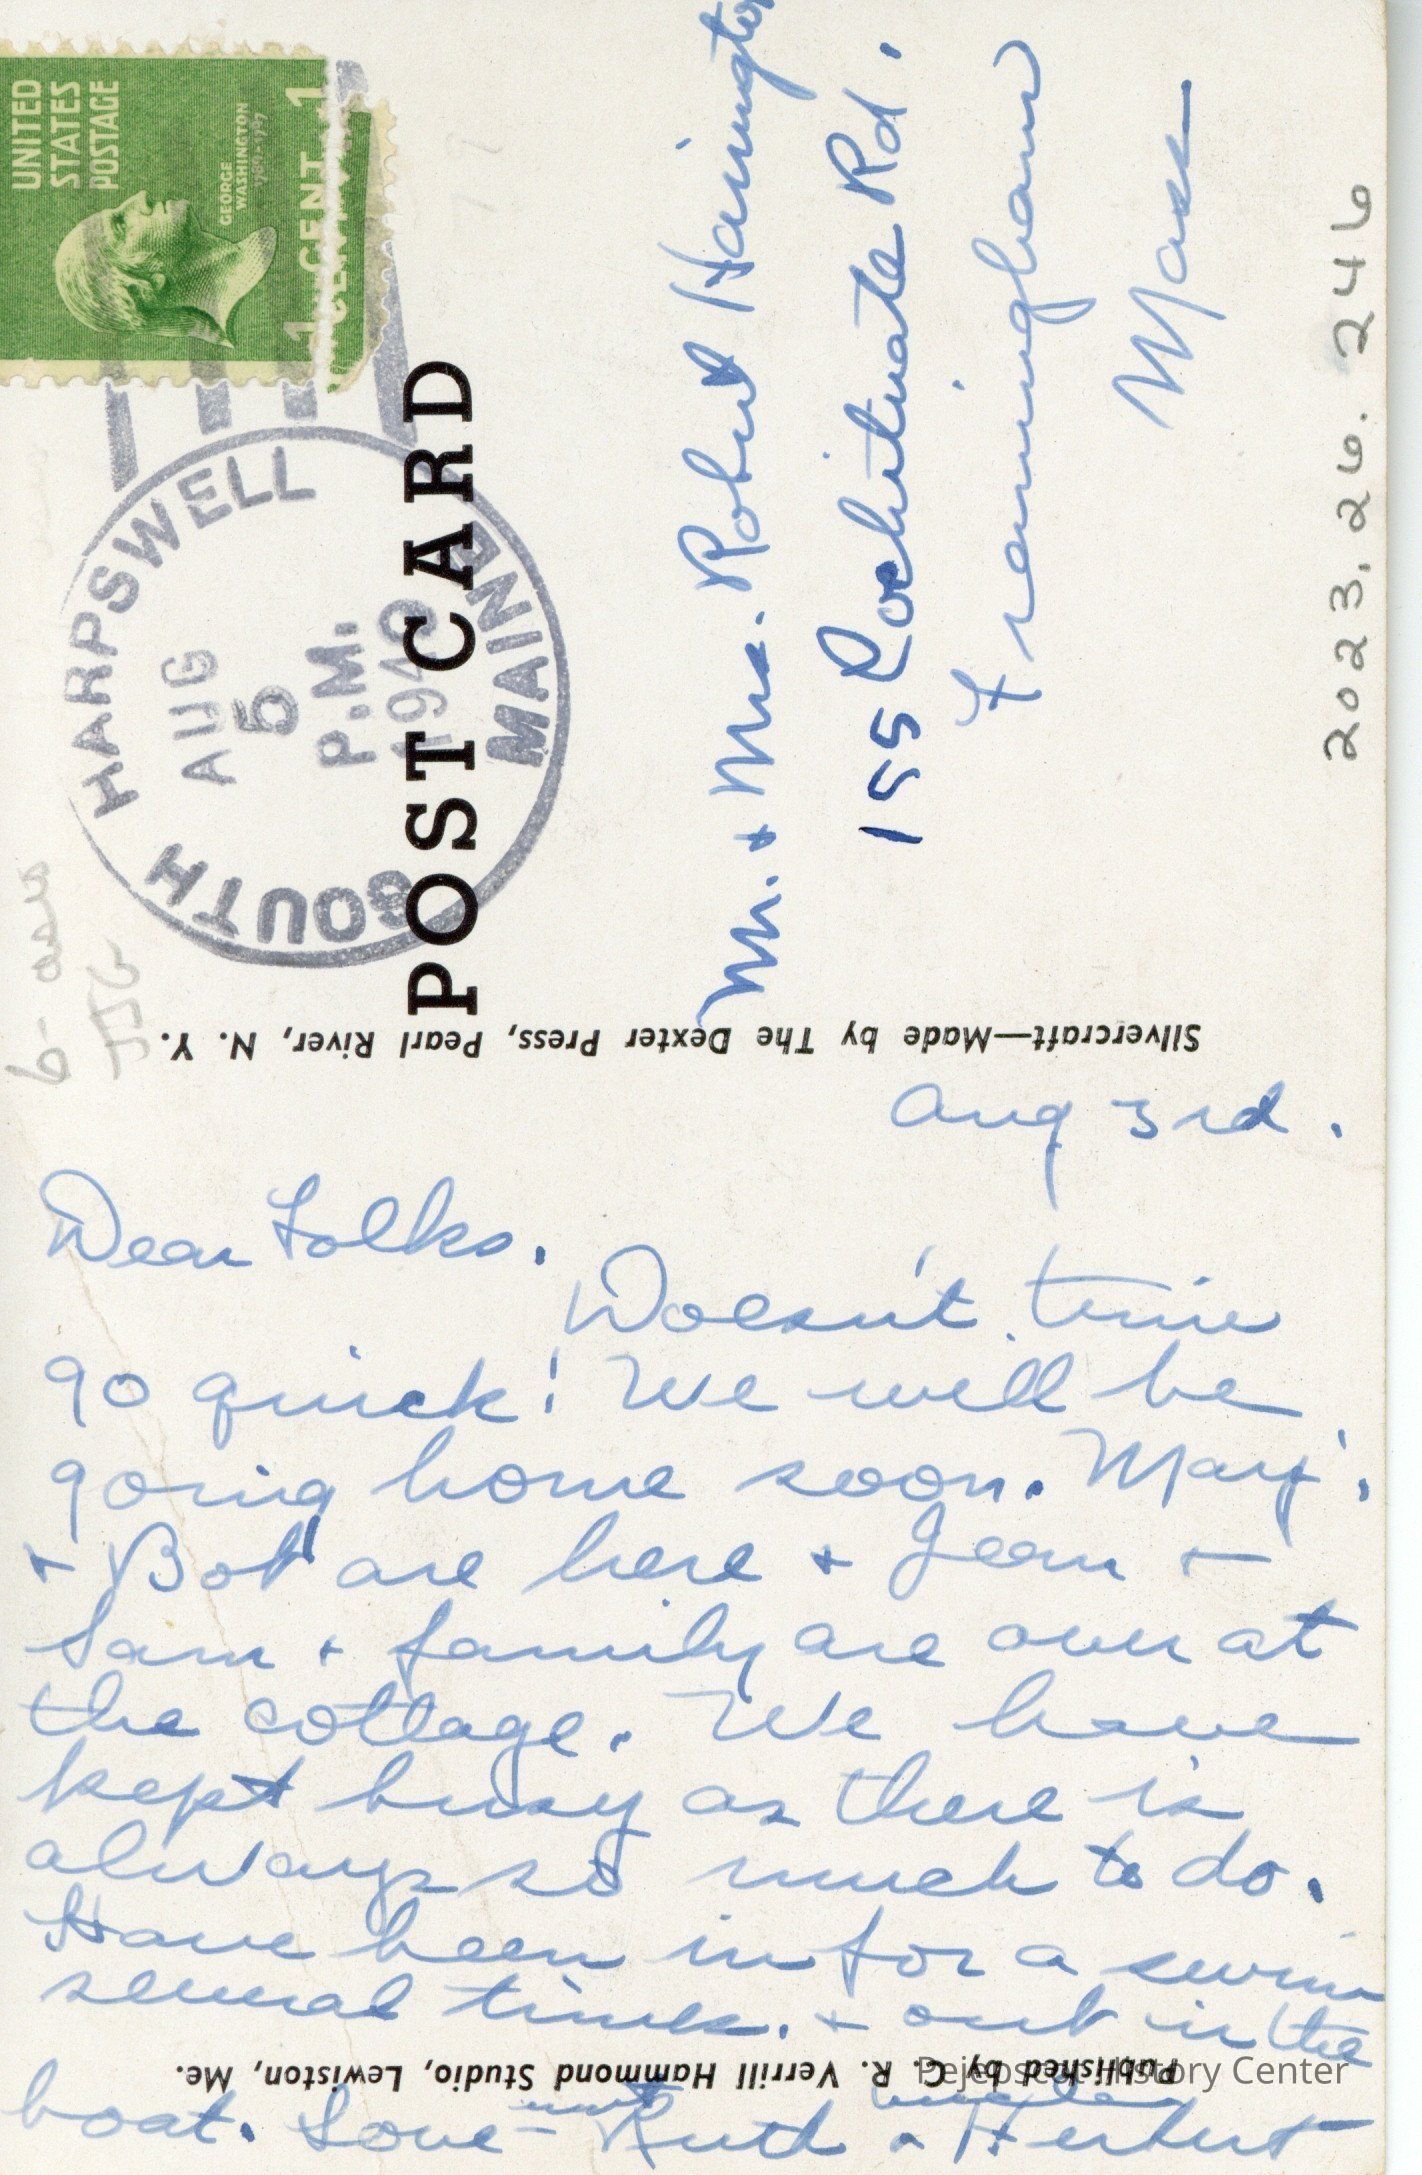 UNITED
STATES
POSTAGE
GEORGE
WASHINGTON
1789-1797
1 CENT 1
SOUTH HARPSWELL
AUG
5
P.M.
MAINE
POST CARD
Mr. + Mrs. Robert Harrington
155 Cochituate Rd.
Framingham
Mass
2023.26.246
Silvercraft—Made by The Dexter Press, Pearl River, N. Y.
Aug 3rd.
Dear Folks.
Doesn't time
go quick! We will be
going home soon.
+ Bob are here + Jean +
Sam + family are over at
the cottage. We have
kept busy as there is
always so much to do.
Have been in for a swim
several times. + out in the
Published by G. R. Verrill Hammond Studio, Lewiston, Me.
boat. Love - Ruth + Herbert
Pejepscot History Center